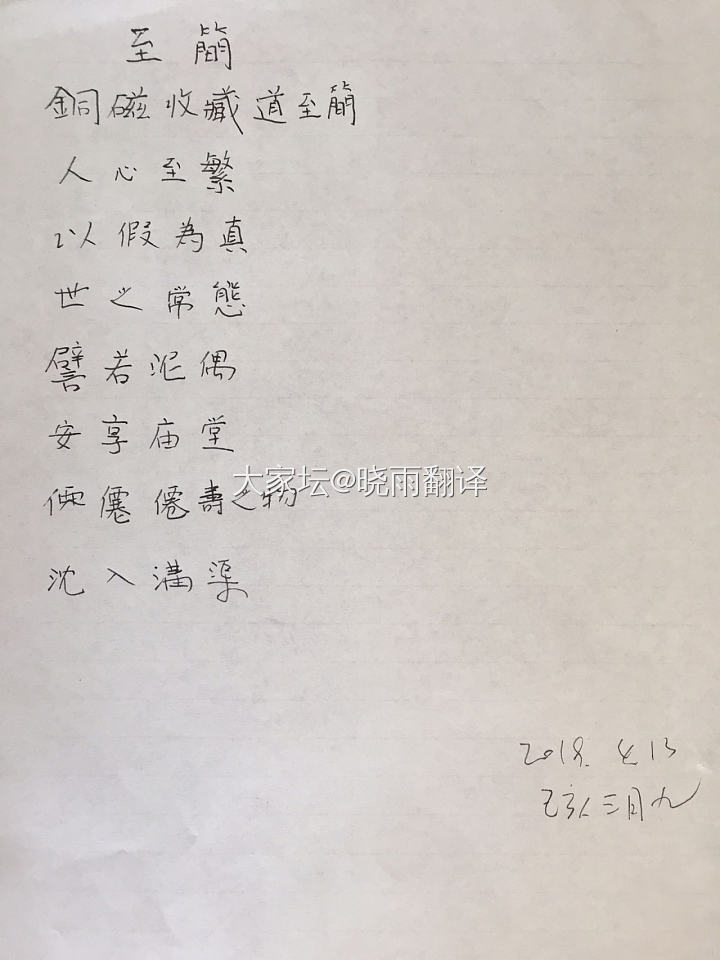 至簡
銅磁收藏道至簡
人心至繁
以假為真
世之常態
譬若泥偶
安享庙堂
僊僊壽之物
大家坛@晓雨翻译
沈入溝渠
2019. 4 13
己亥三月九